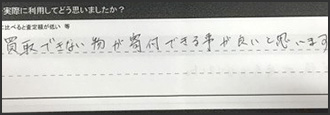 実際に利用してどう思いましたか？
に比べると査定額が低い 等
買取できない物が寄付できる事が良いと思います